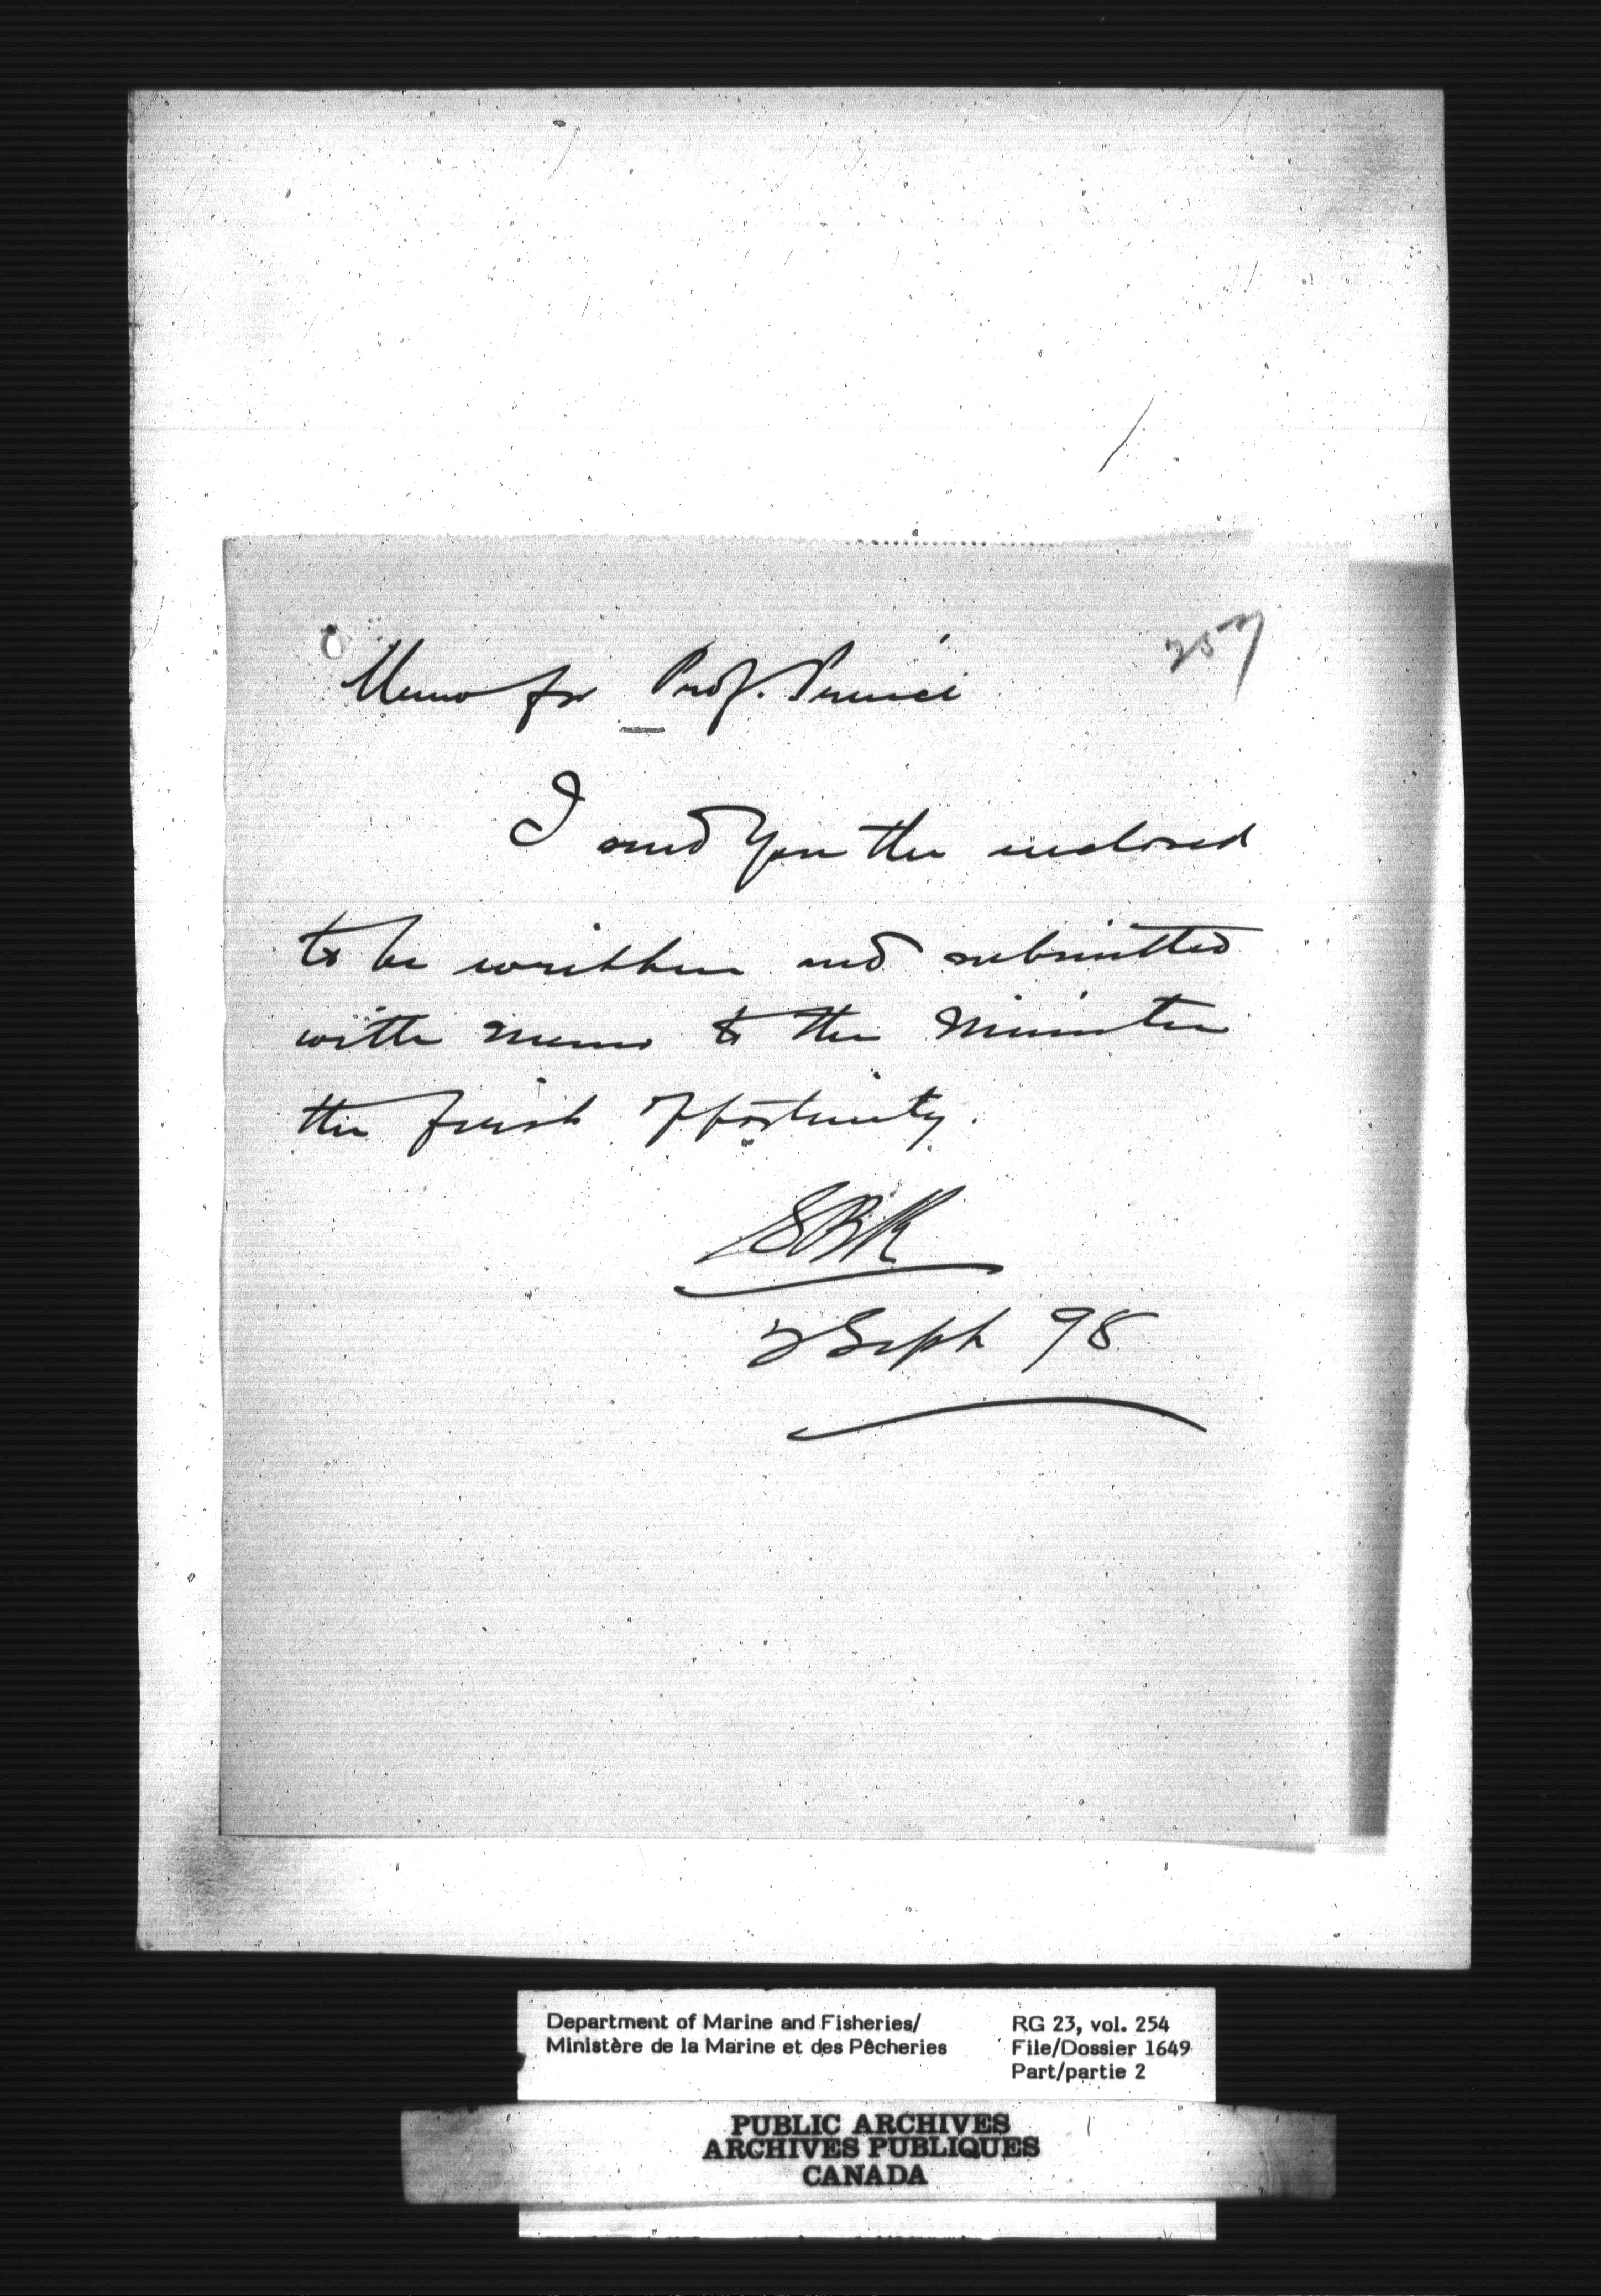 257
Memo for Prof. Prince
I send you the enclosed
to be written and submitted
with memo to the Minister
the first opportunity.
SBK
2 Sept 98
Department of Marine and Fisheries/
Ministère de la Marine et des Pêcheries
RG 23, vol. 254
File/Dossier 1649
Part/partie 2
PUBLIC ARCHIVES
ARCHIVES PUBLIQUES
CANADA